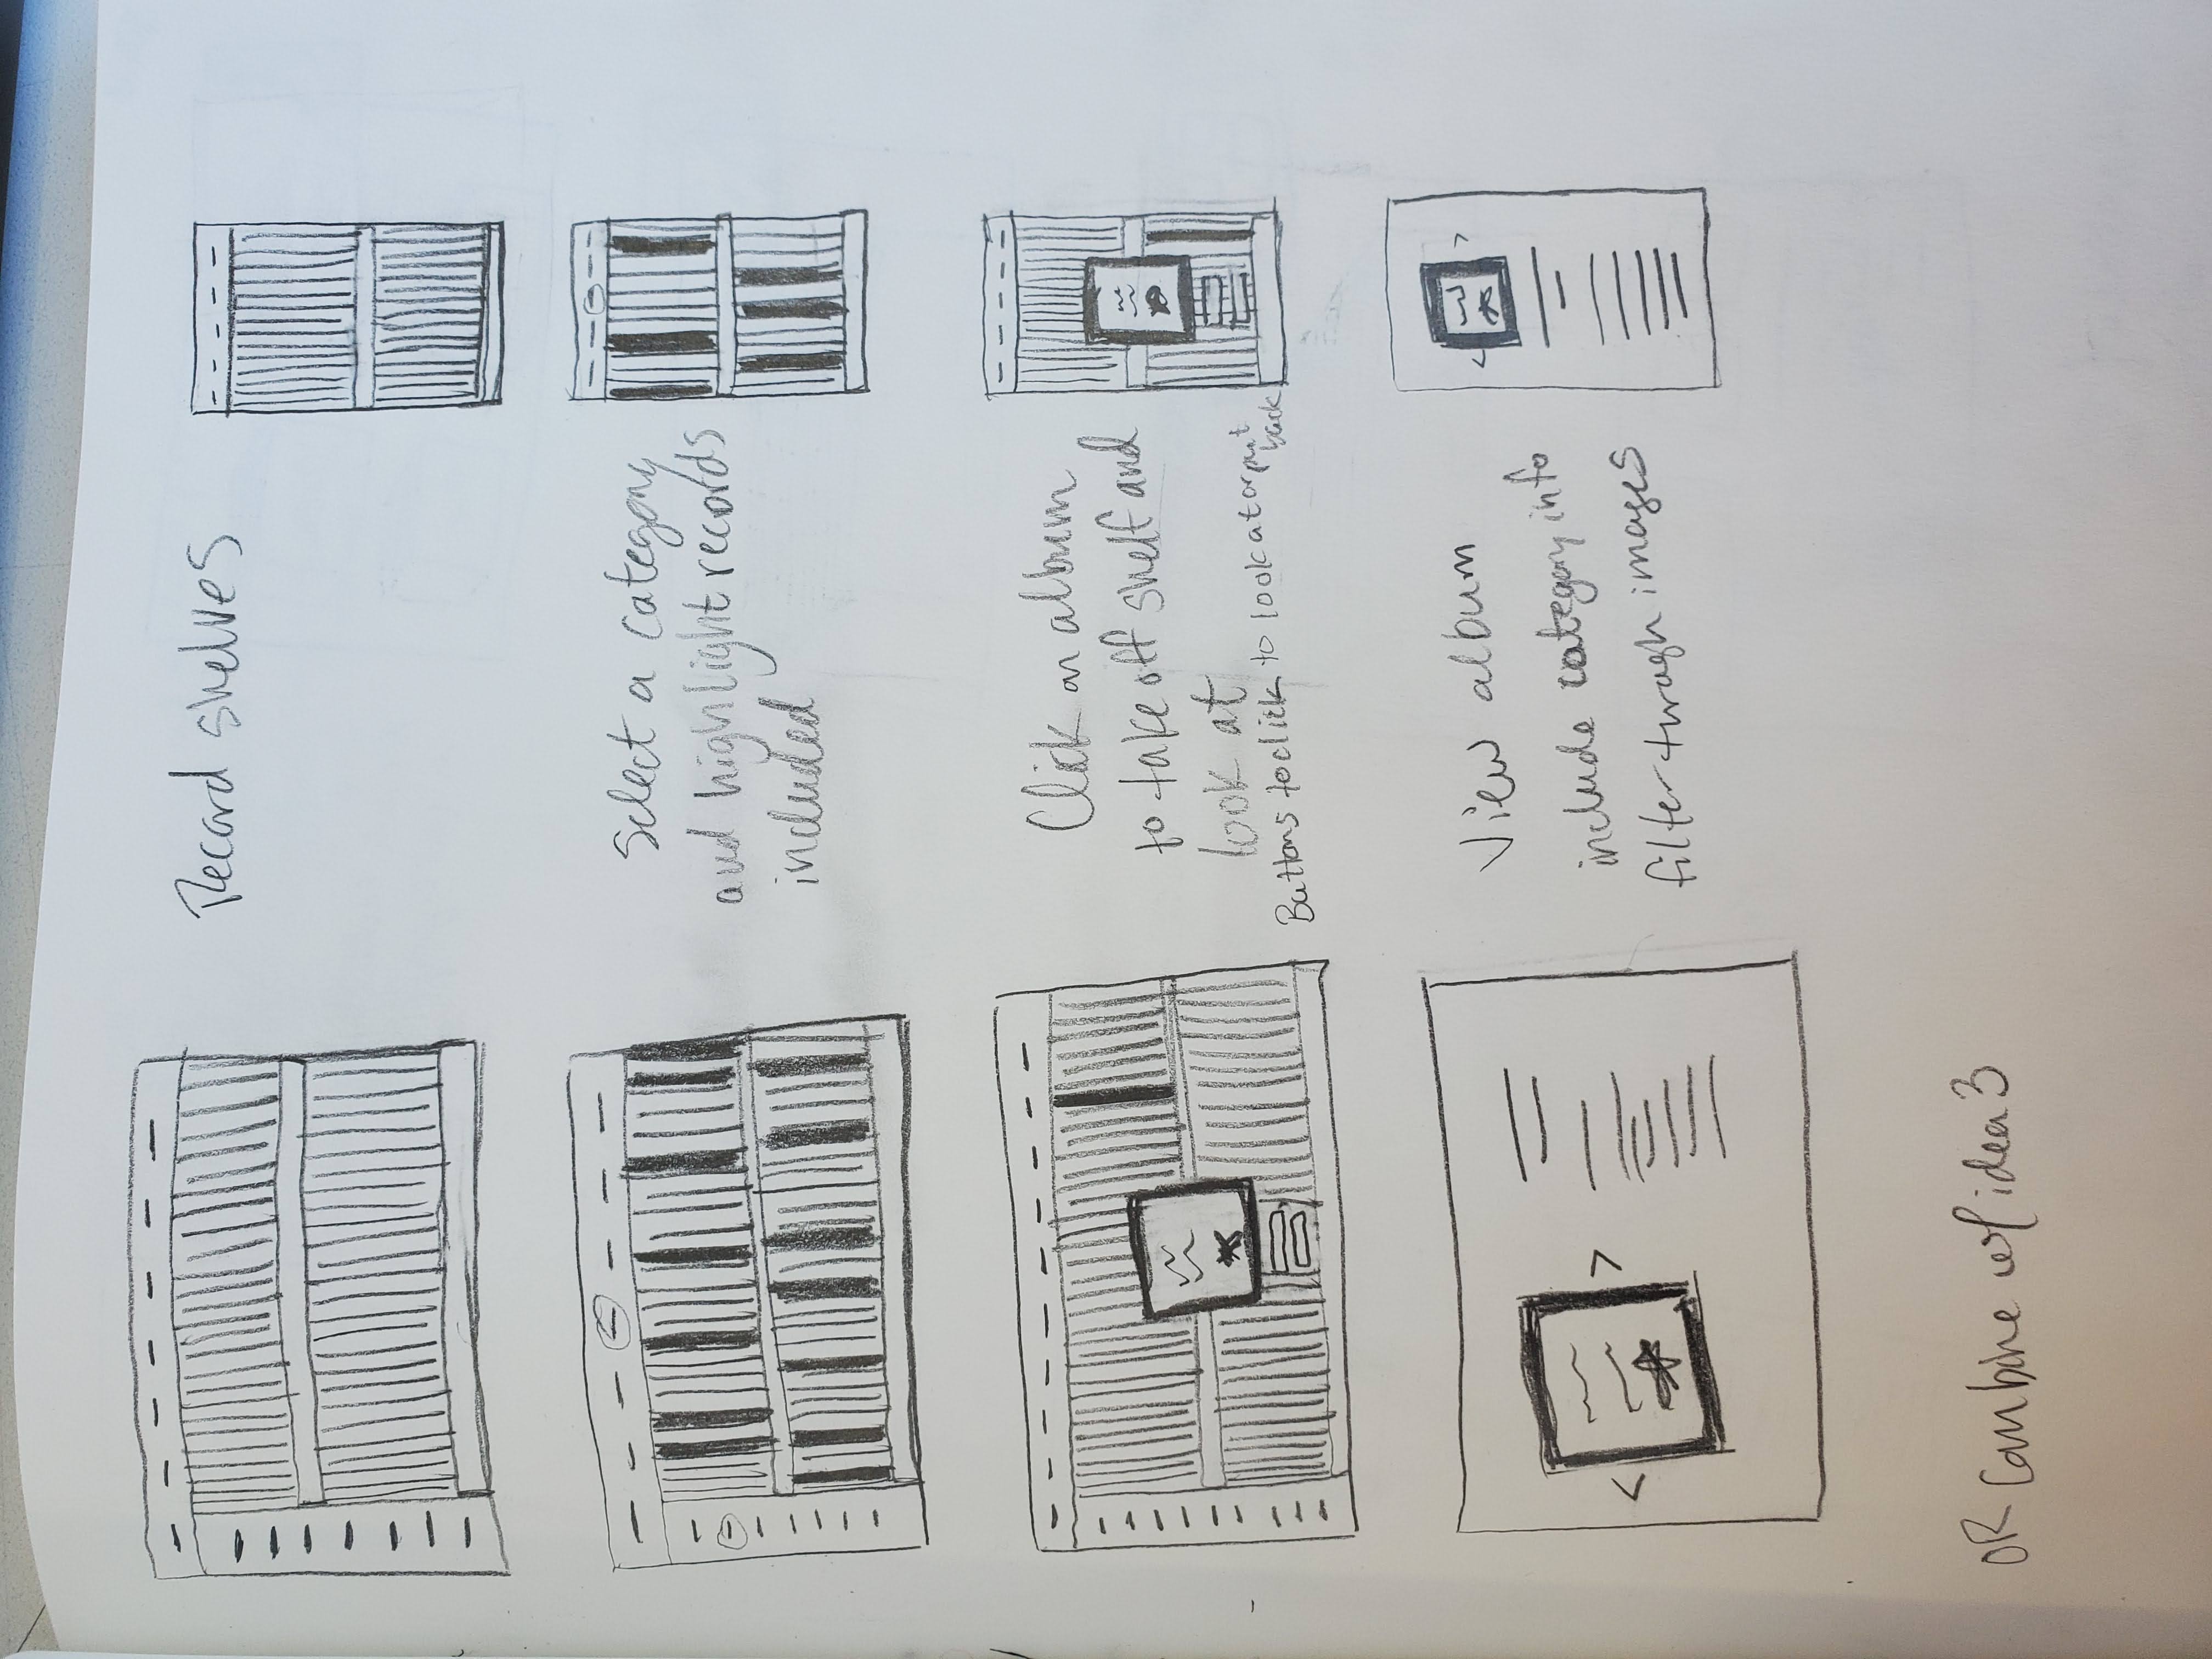 Record shelves
Select a category
and highlight records
included
Click on album
to take off shelf and
look at
Buttons to click to look at or put
back
View album
include category info
filter through images
OR Combine w/ idea 3